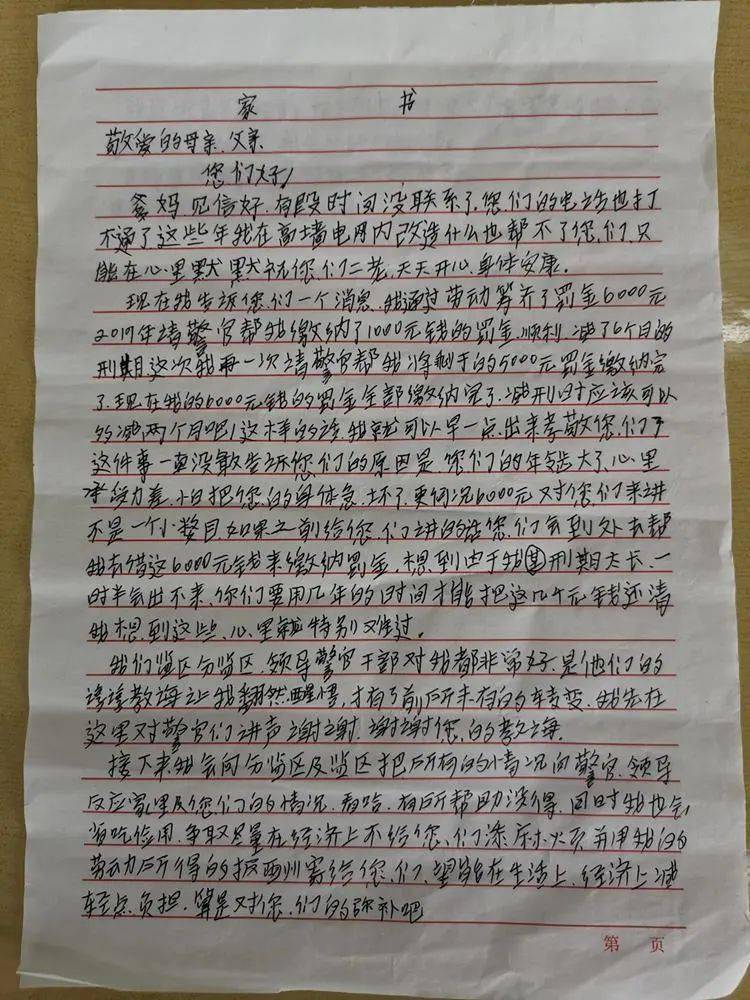 家 书
敬爱的母亲、父亲
您们好!
爹妈见信好.有段时间没联系了.您们的电话也打
不通了这些年我在高墙电网内改造什么也帮不了您们,只
能在心里默默祝您们二老,天天开心.身体安康。
现在我告诉您们一个消息.我通过劳动筹齐了罚金6000元
2019年请警官帮我缴纳了1000元钱的罚金.顺利减了6个月的
刑期这次我再一次请警官帮我将剩于的5000元罚金缴纳完
了.现在我的6000元钱的罚金全部缴纳完了.减刑时应该可以
多减两个月吧!这样的话.我就可以早一点.出来孝敬您们了
这件事一直没敢告诉您们的原因是.您们的年龄大了.心里
承受力差.怕把您的身体急.坏了.更何况6000元对您们来讲
不是一个小数目.如果之前给您们讲的话您们会到处去帮
我去借这6000元钱来缴纳罚金.想到由于我刑期太长.一
时半会出不来、你们要用几年的时间才能把这几千元钱还清
我想到这些、心里就特别难过。
我们监区分监区.领导警官干部对我都非常好.是他们的
谆谆教诲让我翻然醒悟,才有了前所未有的转变.我先在
这里对警官们讲声谢谢.谢谢您的教诲.
接下来我会向分监区及监区把所有的情况向警官.领导
反应家里及您们的情况.看哈.有所帮助没得.同时我也会
省吃俭用.争取尽量在经济上不给您们添麻烦.并用我的
劳动所得的报西州寄给您们、望能在生活上、经济上减
轻点.负担.算是对您们的弥补吧
第 页